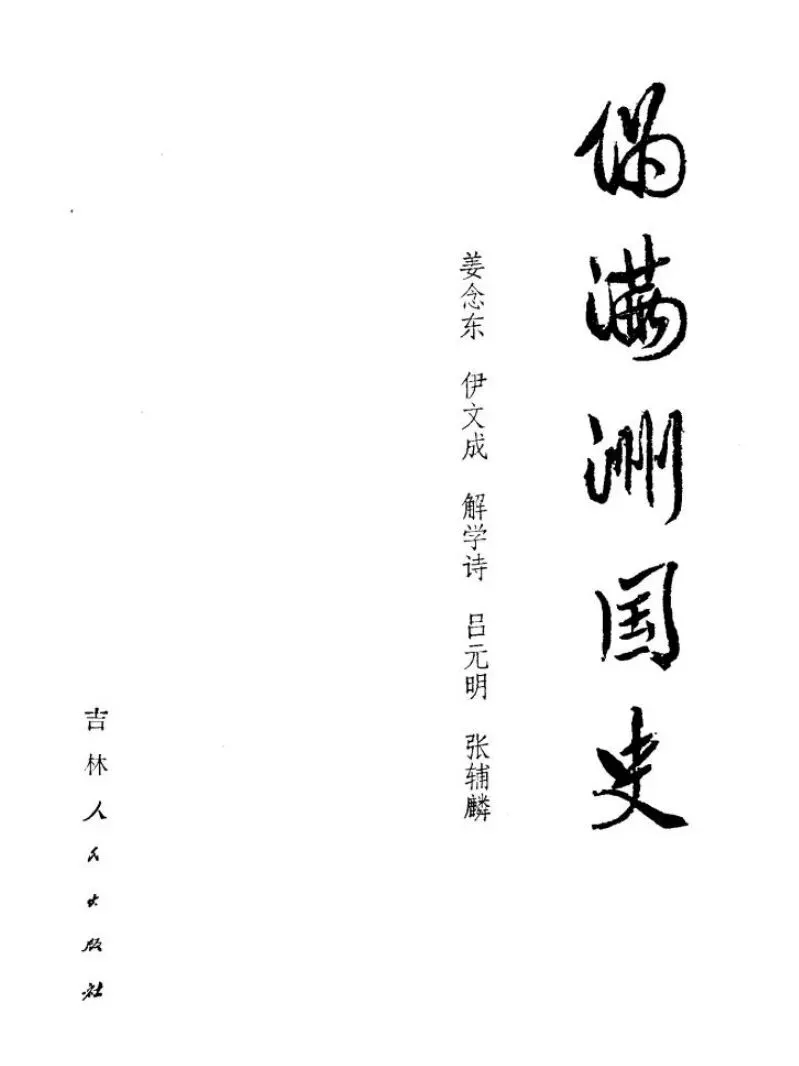 伪满洲国史
姜念东 伊文成 解学诗 吕元明 张辅麟
吉林人民出版社